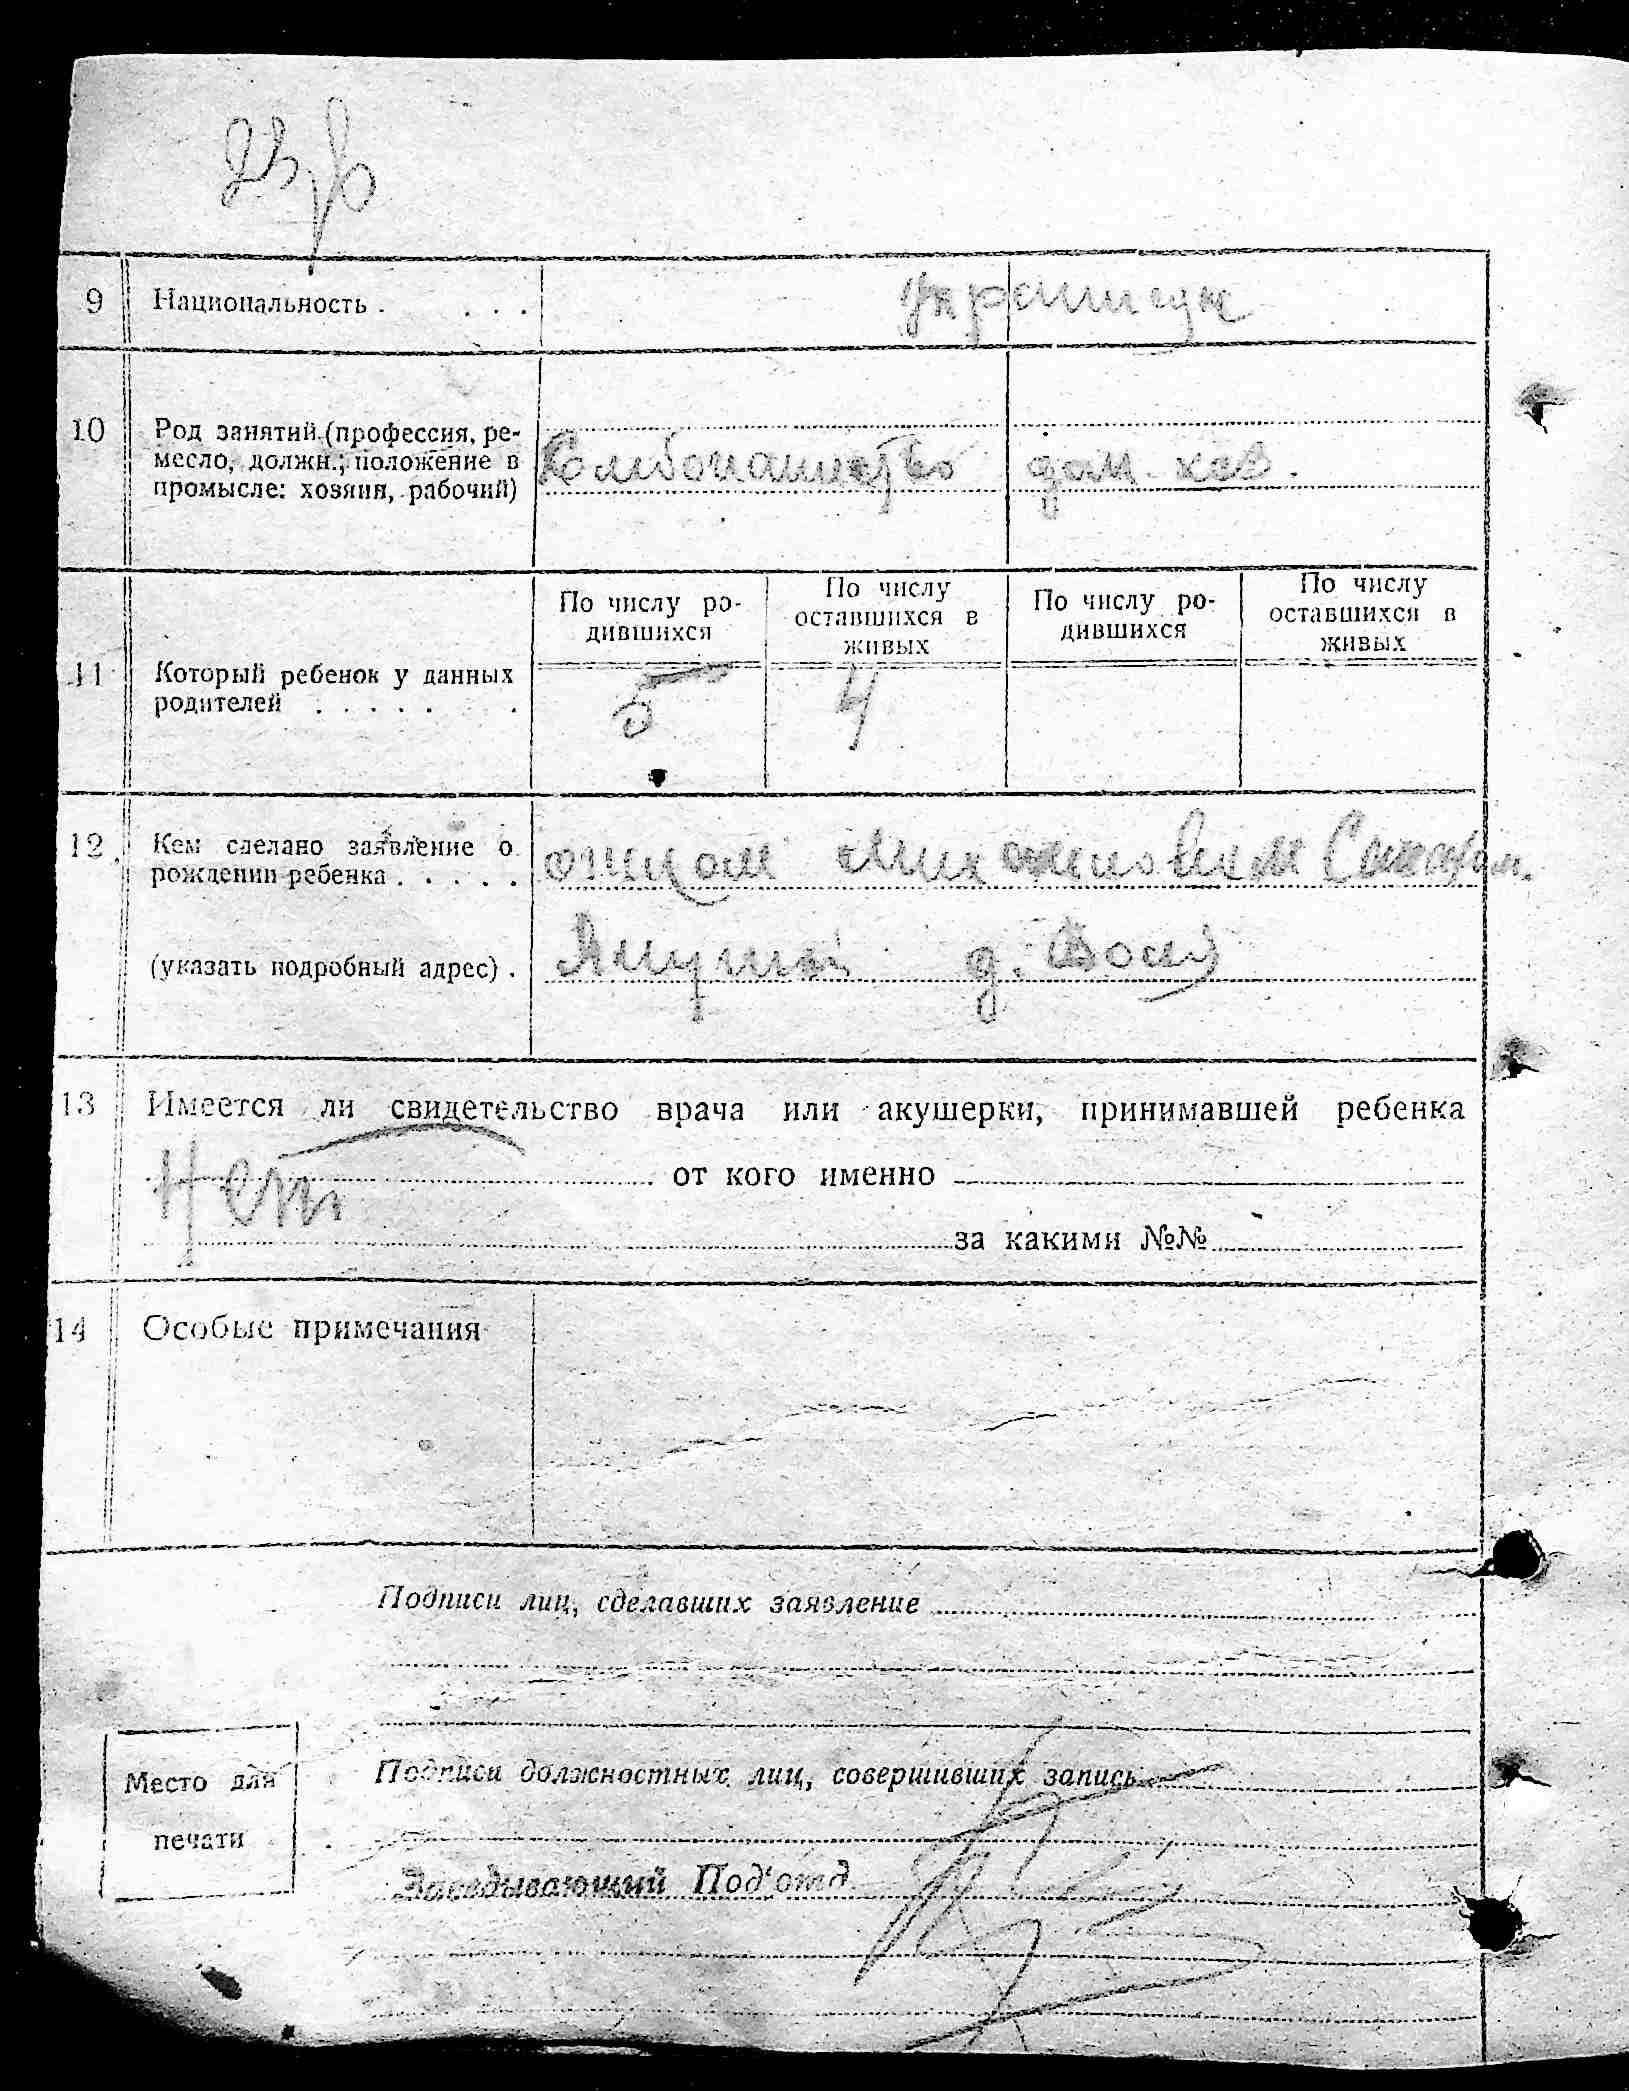 9 Национальность . . . .
10 Род занятий (профессия, ре-
месло, должн.; положение в
промысле: хозяин, рабочий)
Хлебопашество дом. хоз.
По числу ро-
дившихся
По числу
оставшихся в
живых
По числу ро-
дившихся
По числу
оставшихся в
живых
11 Который ребенок у данных
родителей . . . . . .
5 4
12 Кем сделано заявление о
рождении ребенка . . . . .
отцом
(указать подробный адрес) .
д.
13 Имеется ли свидетельство врача или акушерки, принимавшей ребенка
Нет от кого именно
за какими №№
14 Особые примечания
Подписи лиц, сделавших заявление
Подписи должностных лиц, совершивших запись
Место для
печати
Заведывающий Под'отд